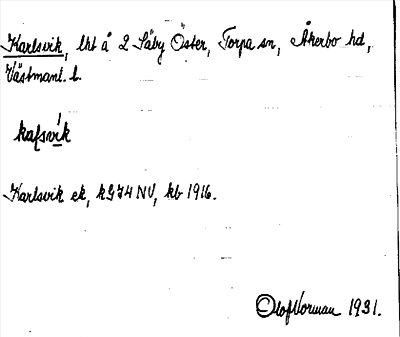 Karlsvik, lht å 2 Säby Öster, Torpa sn, Åkerbo hd,
Västmanl. l.
kafsvík
Karlsvik ek, kG74 NV, kb 1916.
Olof Norman 1931.